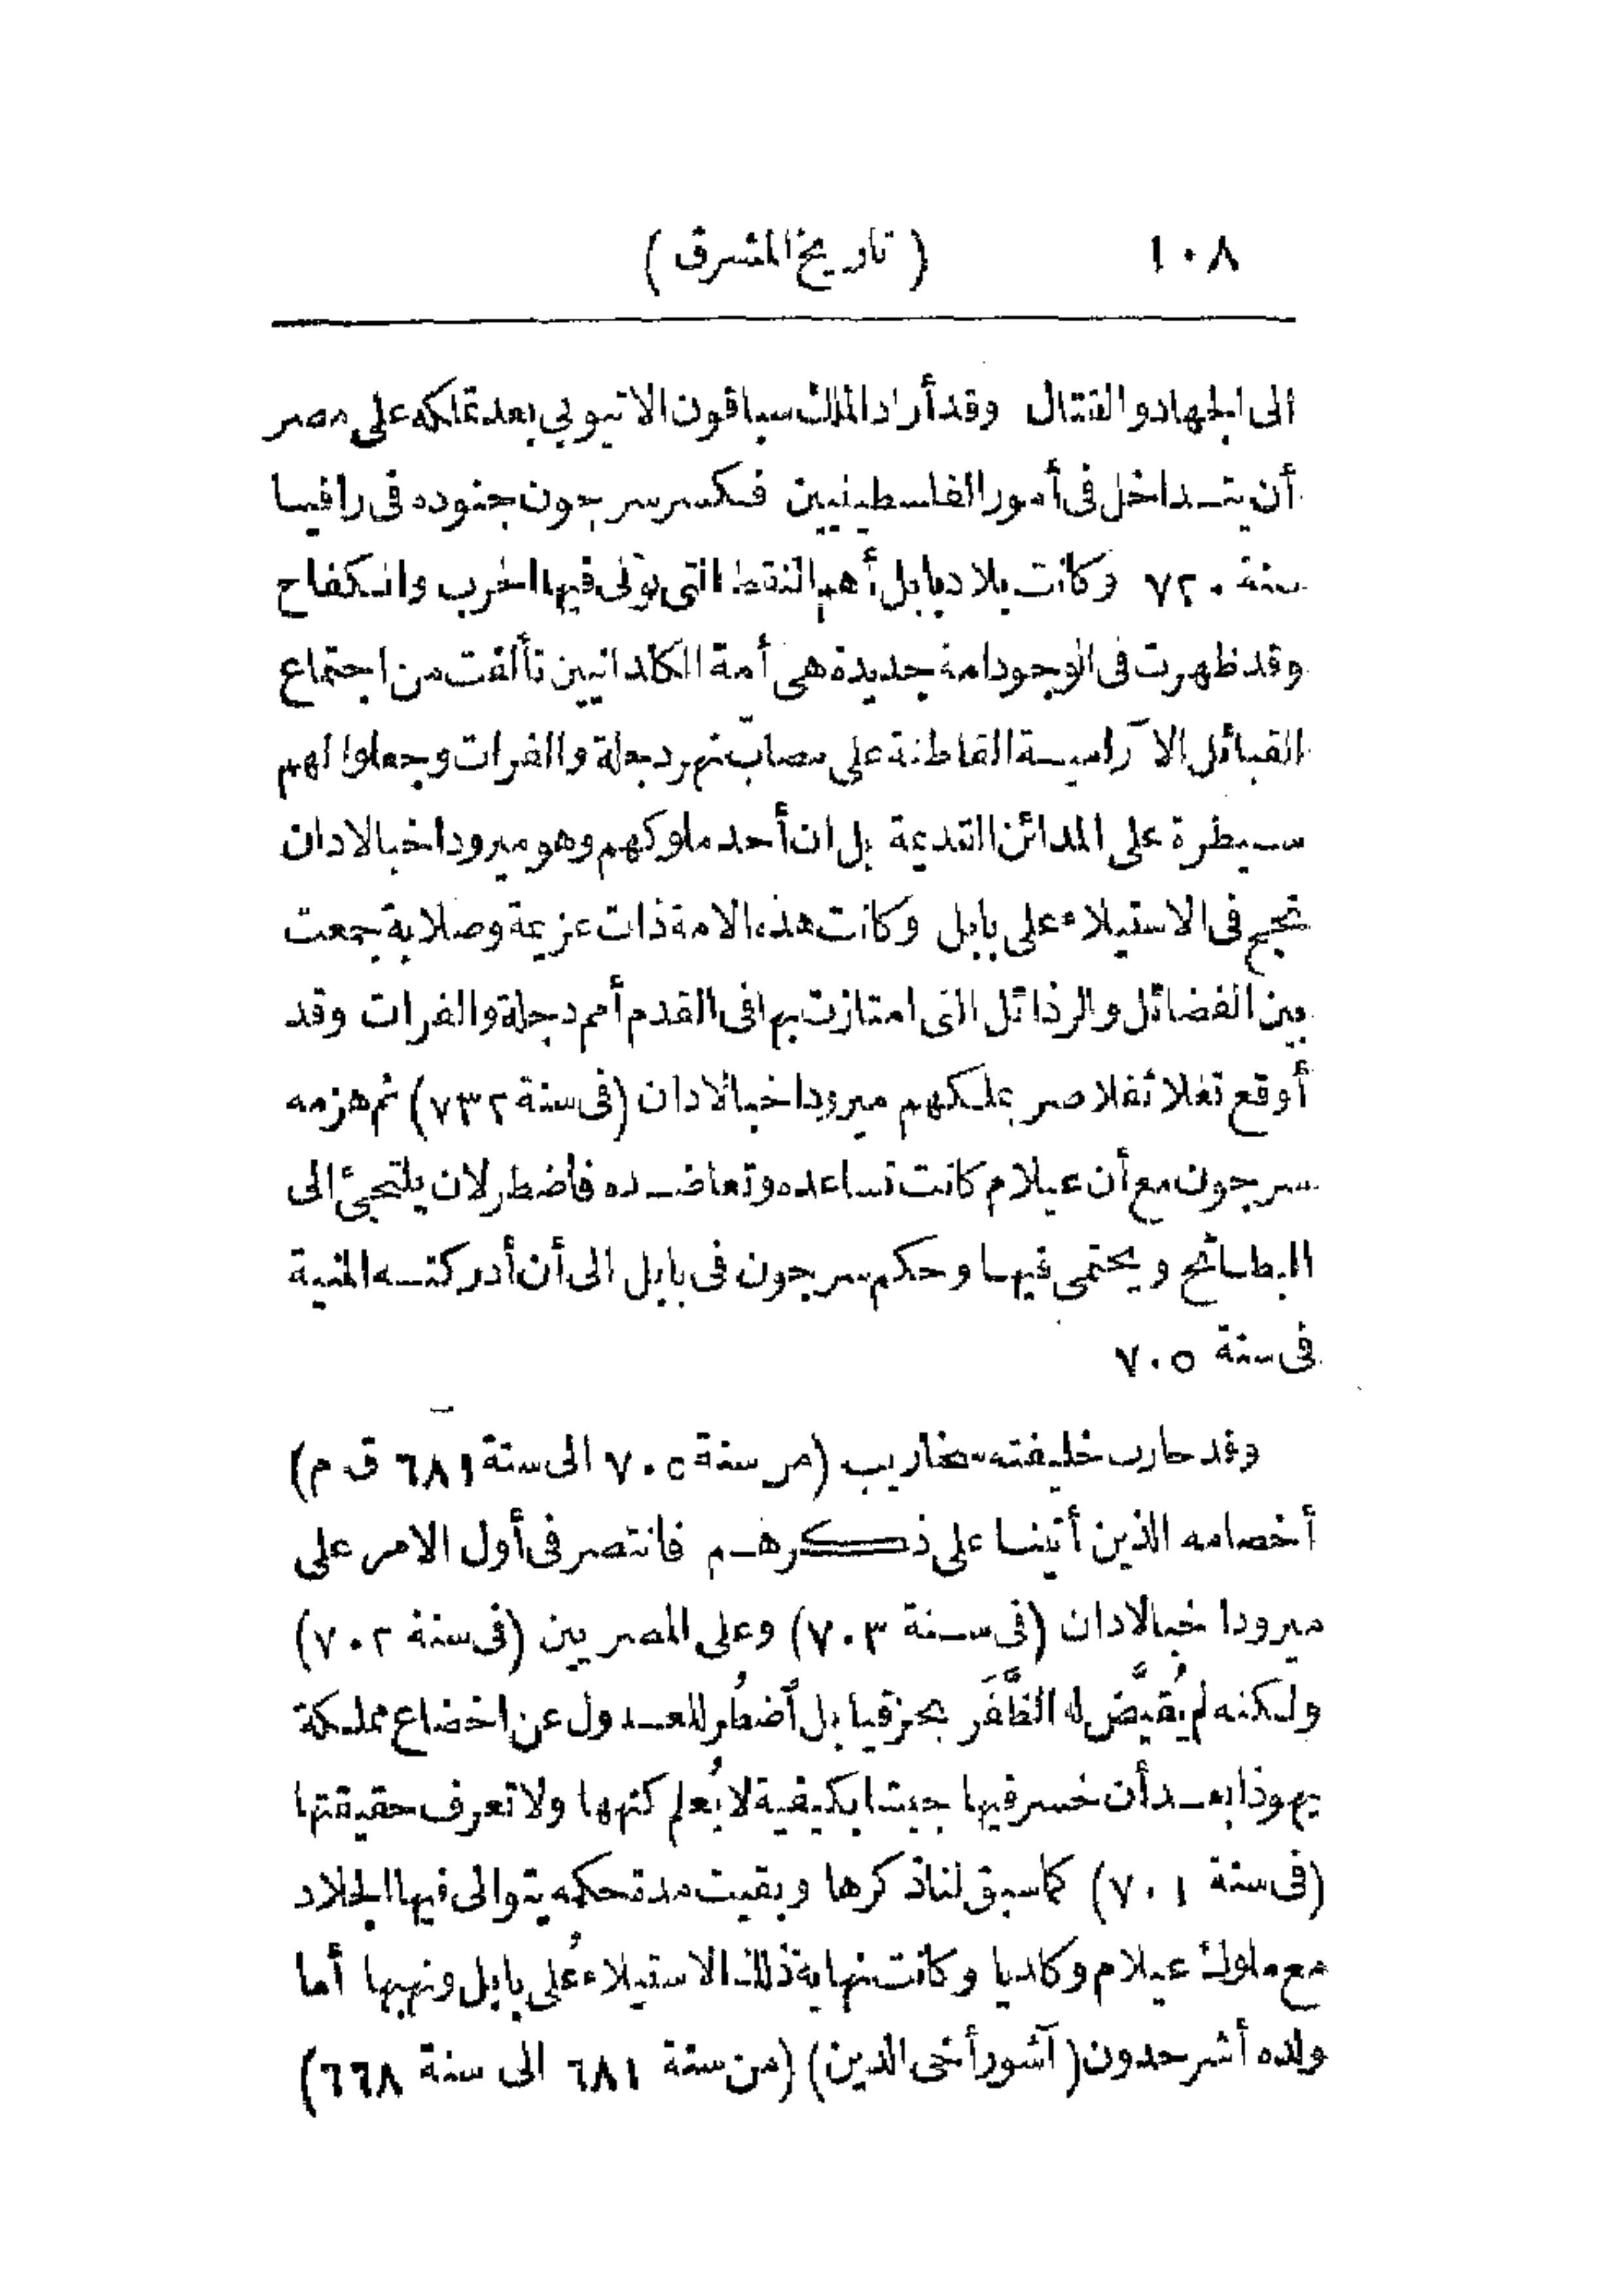 ١٠٨ ( تاريخ المشرق )
الى الجهاد والقتال وقد أراد الملك سباقون الاتيوبي بعد تملكه على مصر
أن يتداخل فى أمور الفلسطينيين فكسر سرجون جنوده فى رافيا
سنة ٧٢٠ وكانت بلاد بابل أهم النقط التى توالى فيها الحرب والكفاح
وقد ظهرت فى الوجود امة جديدة هى أمة الكلدانيين تألفت من اجتماع
القبائل الآرامية القاطنة على مصابّ نهر دجلة والفرات وجعلوا لهم
سيطرة على المدائن القديمة بل ان أحد ملوكهم وهو ميروداخبالادان
نجح فى الاستيلاء على بابل وكانت هذه الامة ذات عزيمة وصلابة جمعت
بين الفضائل والرذائل التى امتازت بها فى القدم أمم دجلة والفرات وقد
أوقع تغلاثفلاصر بملكهم ميروداخبالادان (فى سنة ٧٣٢) ثم هزمه
سرجون مع أن عيلام كانت تساعده وتعاضده فأضطر لان يلتجئ الى
البطائح ويحتمى فيها وحكم سرجون فى بابل الى أن أدركته المنية
فى سنة ٧٠٥
وقد حارب خليفته سخاريب (من سنة ٧٠٥ الى سنة ٦٨١ ق م)
أخصامه الذين أتينا على ذكرهم فانتصر فى أول الامر على
ميروداخبالادان (فى سنة ٧٠٣) وعلى المصريين (فى سنة ٧٠٢)
ولكنه لم يُقيَّض له الظَّفَر بحزقيا بل أضطُر للعدول عن اخضاع مملكة
يهوذا بعد أن خسر فيها جيشا بكيفية لا يُعلم كنهها ولا تعرف حقيقتها
(فى سنة ٧٠١) كما سبق لنا ذكرها وبقيت مدة حكمه يتوالى فيها الجلاد
مع ملوك عيلام وكلديا وكانت نهاية ذلك الاستيلاء على بابل ونهبها أما
ولده أشرحدون (آشور أخى الدين) (من سنة ٦٨١ الى سنة ٦٦٨)